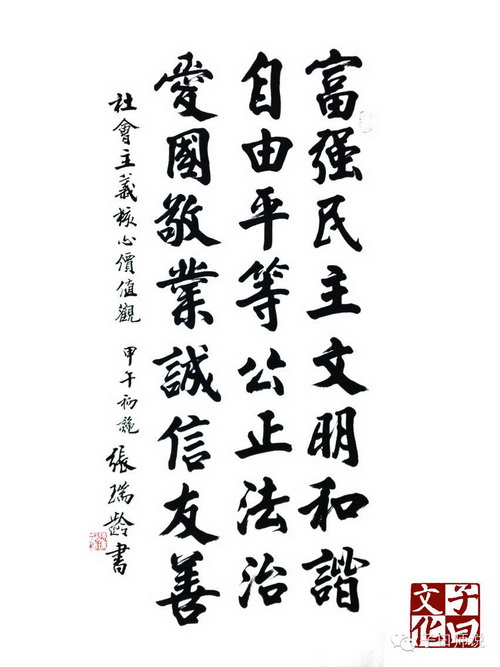 富强民主文明和諧
自由平等公正法治
愛國敬業誠信友善
社會主義核心價值觀
甲午初龍 張瑞龄書
子曰文化